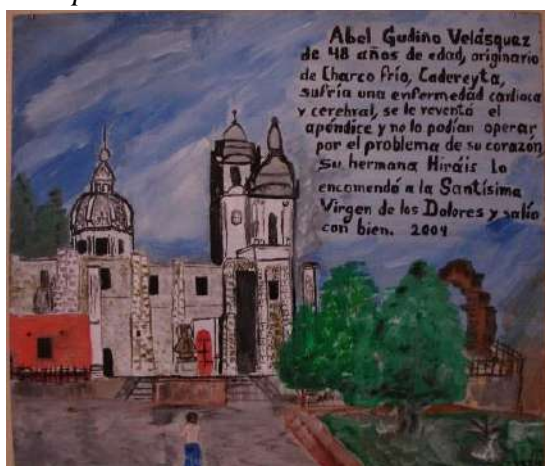 Abel Gudiño Velásquez
de 48 años de edad, originario
de Charco frío, Cadereyta,
sufría una enfermedad cardiaca
y cerebral, se le reventó el
apéndice y no lo podían operar
por el problema de su corazón
Su hermana Hiráis lo
encomendó a la Santísima
Virgen de los Dolores y salío
con bien. 2009